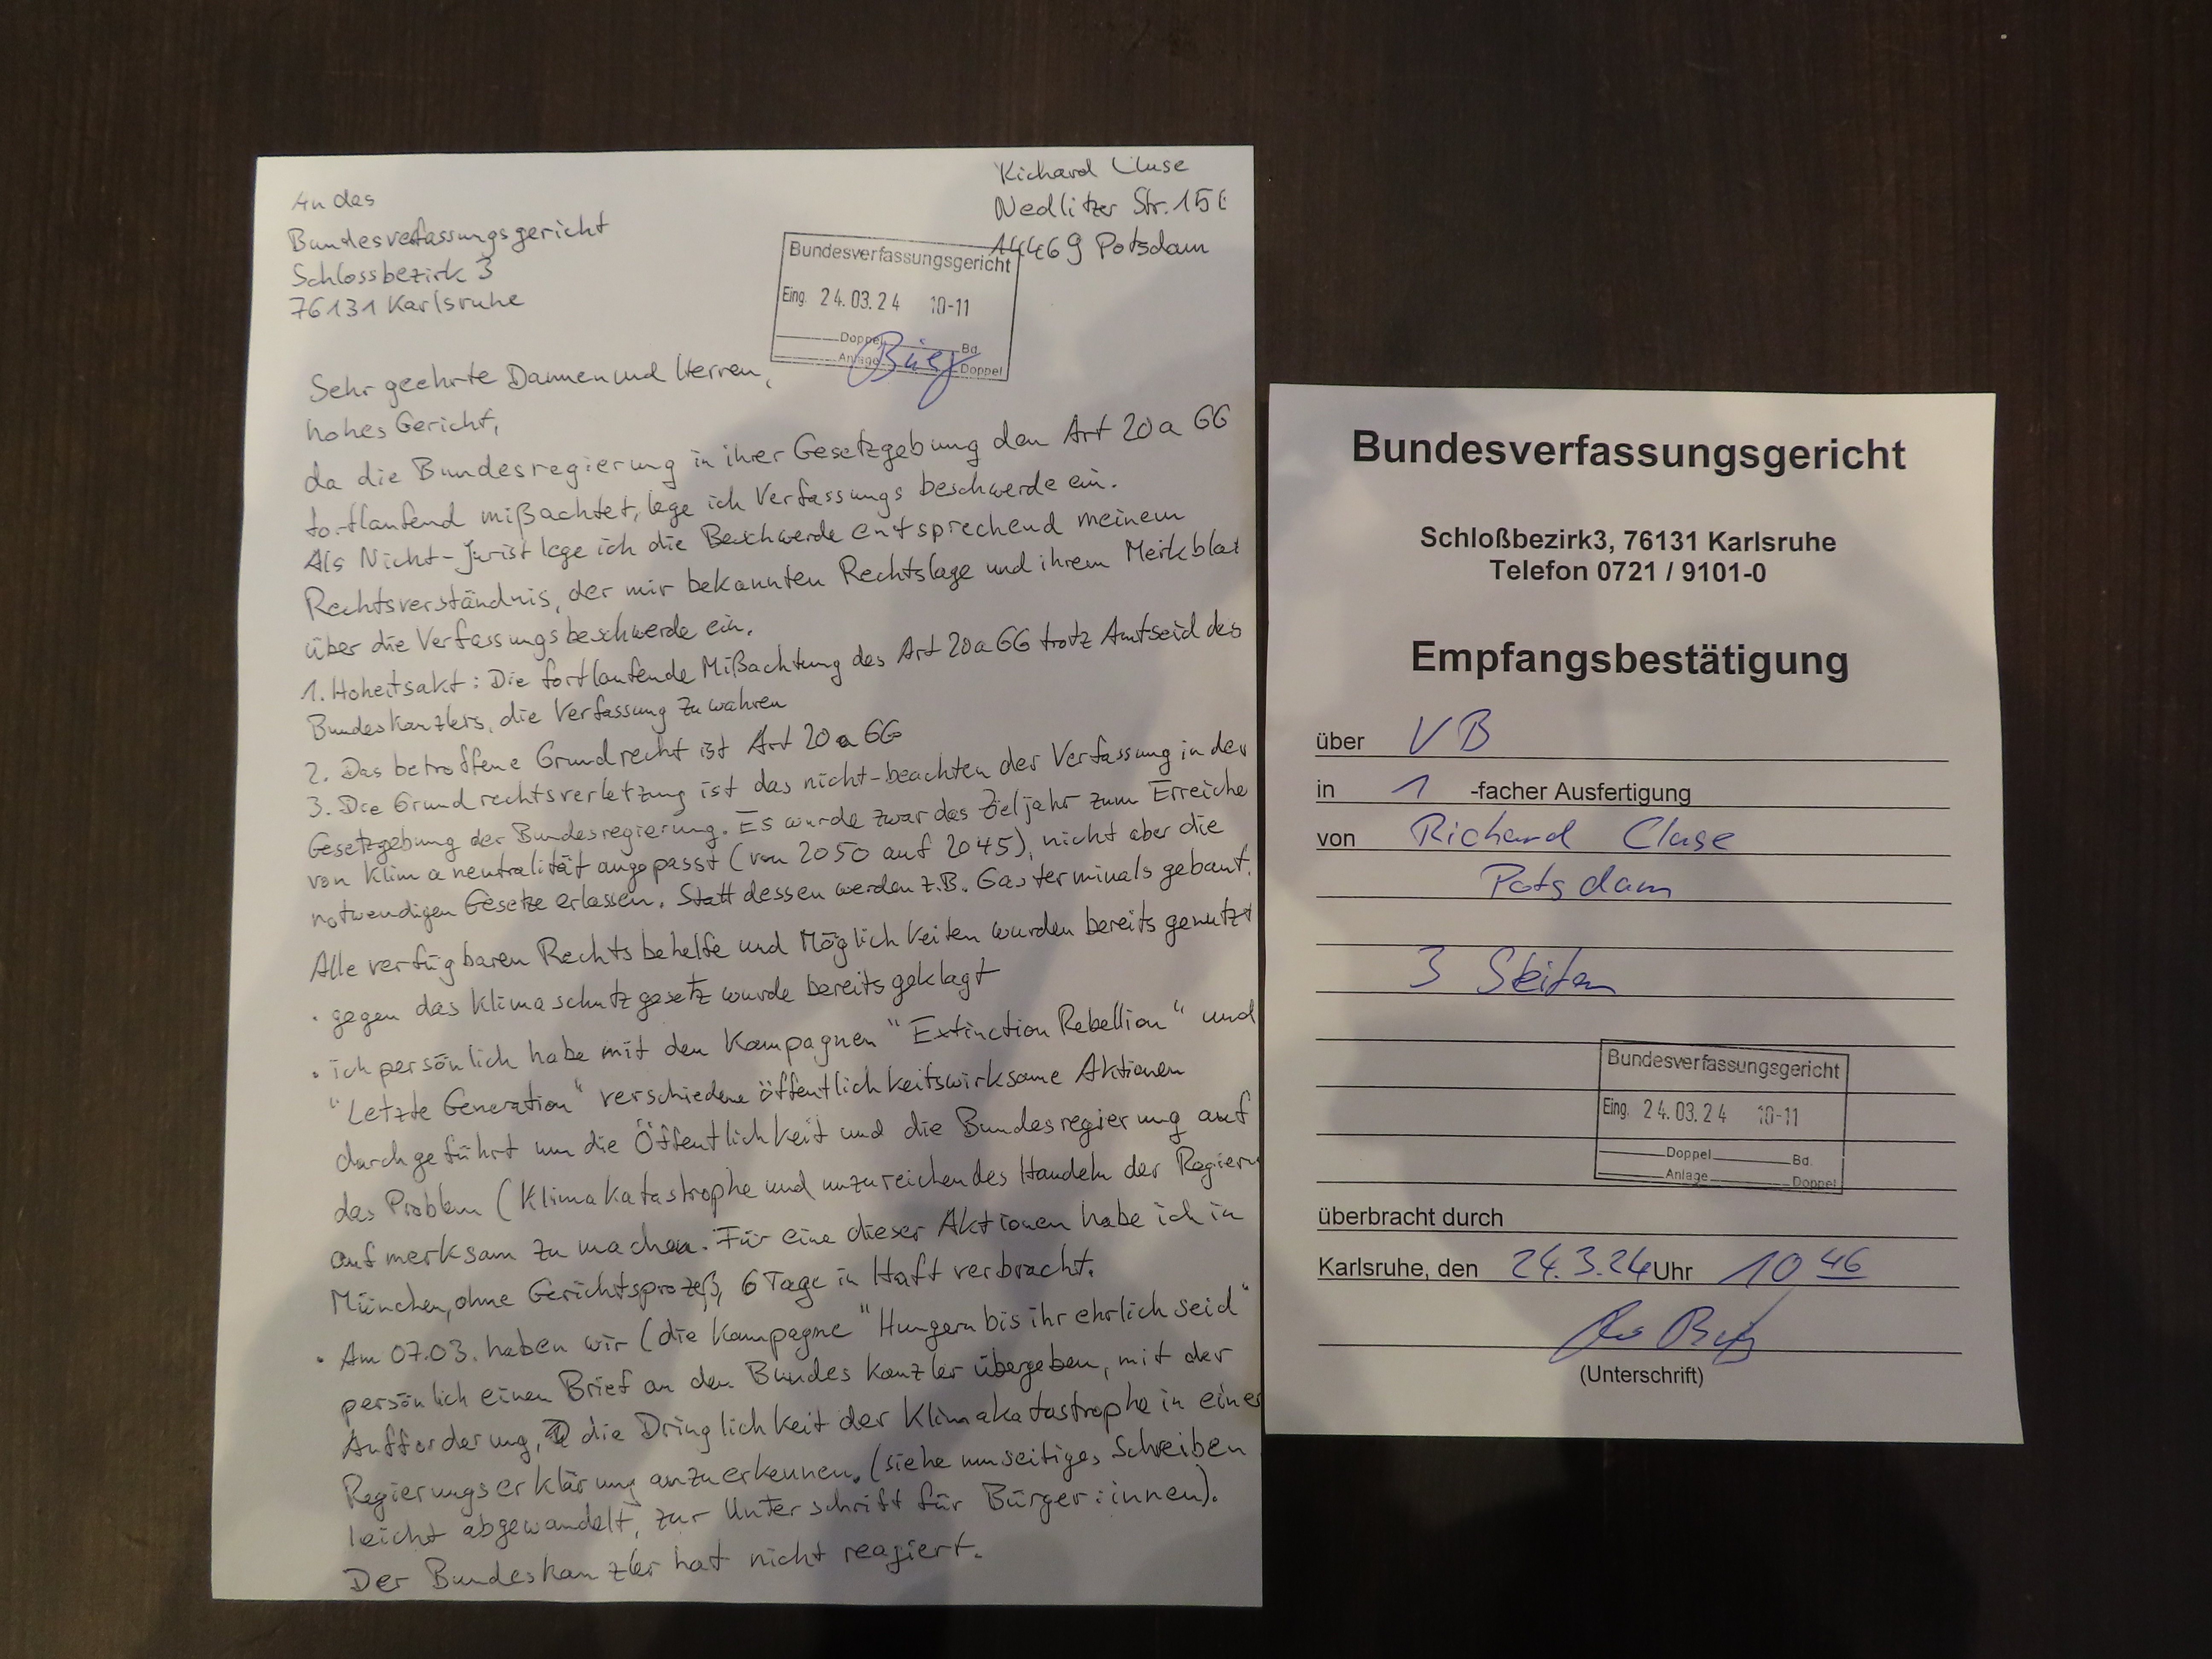 An das
Bundesverfassungsgericht
Schlossbezirk 3
76131 Karlsruhe
Richard Cluse
Nedlitzer Str. 15
14469 Potsdam
Bundesverfassungsgericht
Eing. 24.03.24 10-11
Doppel Bd.
Anlage Doppel
Sehr geehrte Dammen und Herren,
hohes Gericht,
da die Bundesregierung in ihrer Gesetzgebung den Art 20a GG
fortlaufend mißachtet, lege ich Verfassungsbeschwerde ein.
Als Nicht-Jurist lege ich die Beschwerde entsprechend meinem
Rechtsverständnis, der mir bekannten Rechtslage und ihrem Merkblat
über die Verfassungsbeschwerde ein.
1. Hoheitsakt: Die fortlaufende Mißachtung des Art 20a GG trotz Amtseid des
Bundeskanzlers, die Verfassung zu wahren
2. Das betroffene Grundrecht ist Art 20a GG
3. Die Grundrechtsverletzung ist das nicht-beachten der Verfassung in der
Gesetzgebung der Bundesregierung. Es wurde zwar das Zieljahr zum Erreiche
von Klimaneutralität angepasst (von 2050 auf 2045), nicht aber die
notwendigen Gesetze erlassen. Statt dessen werden z.B. Gasterminals gebaut.
Alle verfügbaren Rechtsbehelfe und Möglichkeiten wurden bereits genutzt
· gegen das Klimaschutzgesetz wurde bereits geklagt
· ich persönlich habe mit den Kampagnen "Extinction Rebellion" und
"Letzte Generation" verschiedene öffentlichkeitswirksame Aktionen
durchgeführt um die Öffentlichkeit und die Bundesregierung auf
das Problem (Klimakatastrophe und unzureichendes Handeln der Regieru
aufmerksam zu machen. Für eine dieser Aktionen habe ich in
München, ohne Gerichtsprozeß, 6 Tage in Haft verbracht.
· Am 07.03. haben wir (die Kampagne "Hungern bis ihr ehrlich seid"
persönlich einen Brief an den Bundeskanzler übergeben, mit der
Aufforderung, die Dringlichkeit der Klimakatastrophe in einer
Regierungserklärung anzuerkennen. (siehe umseitiges Schreiben
leicht abgewandelt, zur Unterschrift für Bürger:innen).
Der Bundeskanzler hat nicht reagiert.
Bundesverfassungsgericht
Schloßbezirk3, 76131 Karlsruhe
Telefon 0721 / 9101-0
Empfangsbestätigung
über VB
in 1 -facher Ausfertigung
von Richard Cluse
Potsdam
3 Seiten
Bundesverfassungsgericht
Eing. 24.03.24 10-11
Doppel Bd.
Anlage Doppel
überbracht durch
Karlsruhe, den 24.3.24 Uhr 10 46
(Unterschrift)